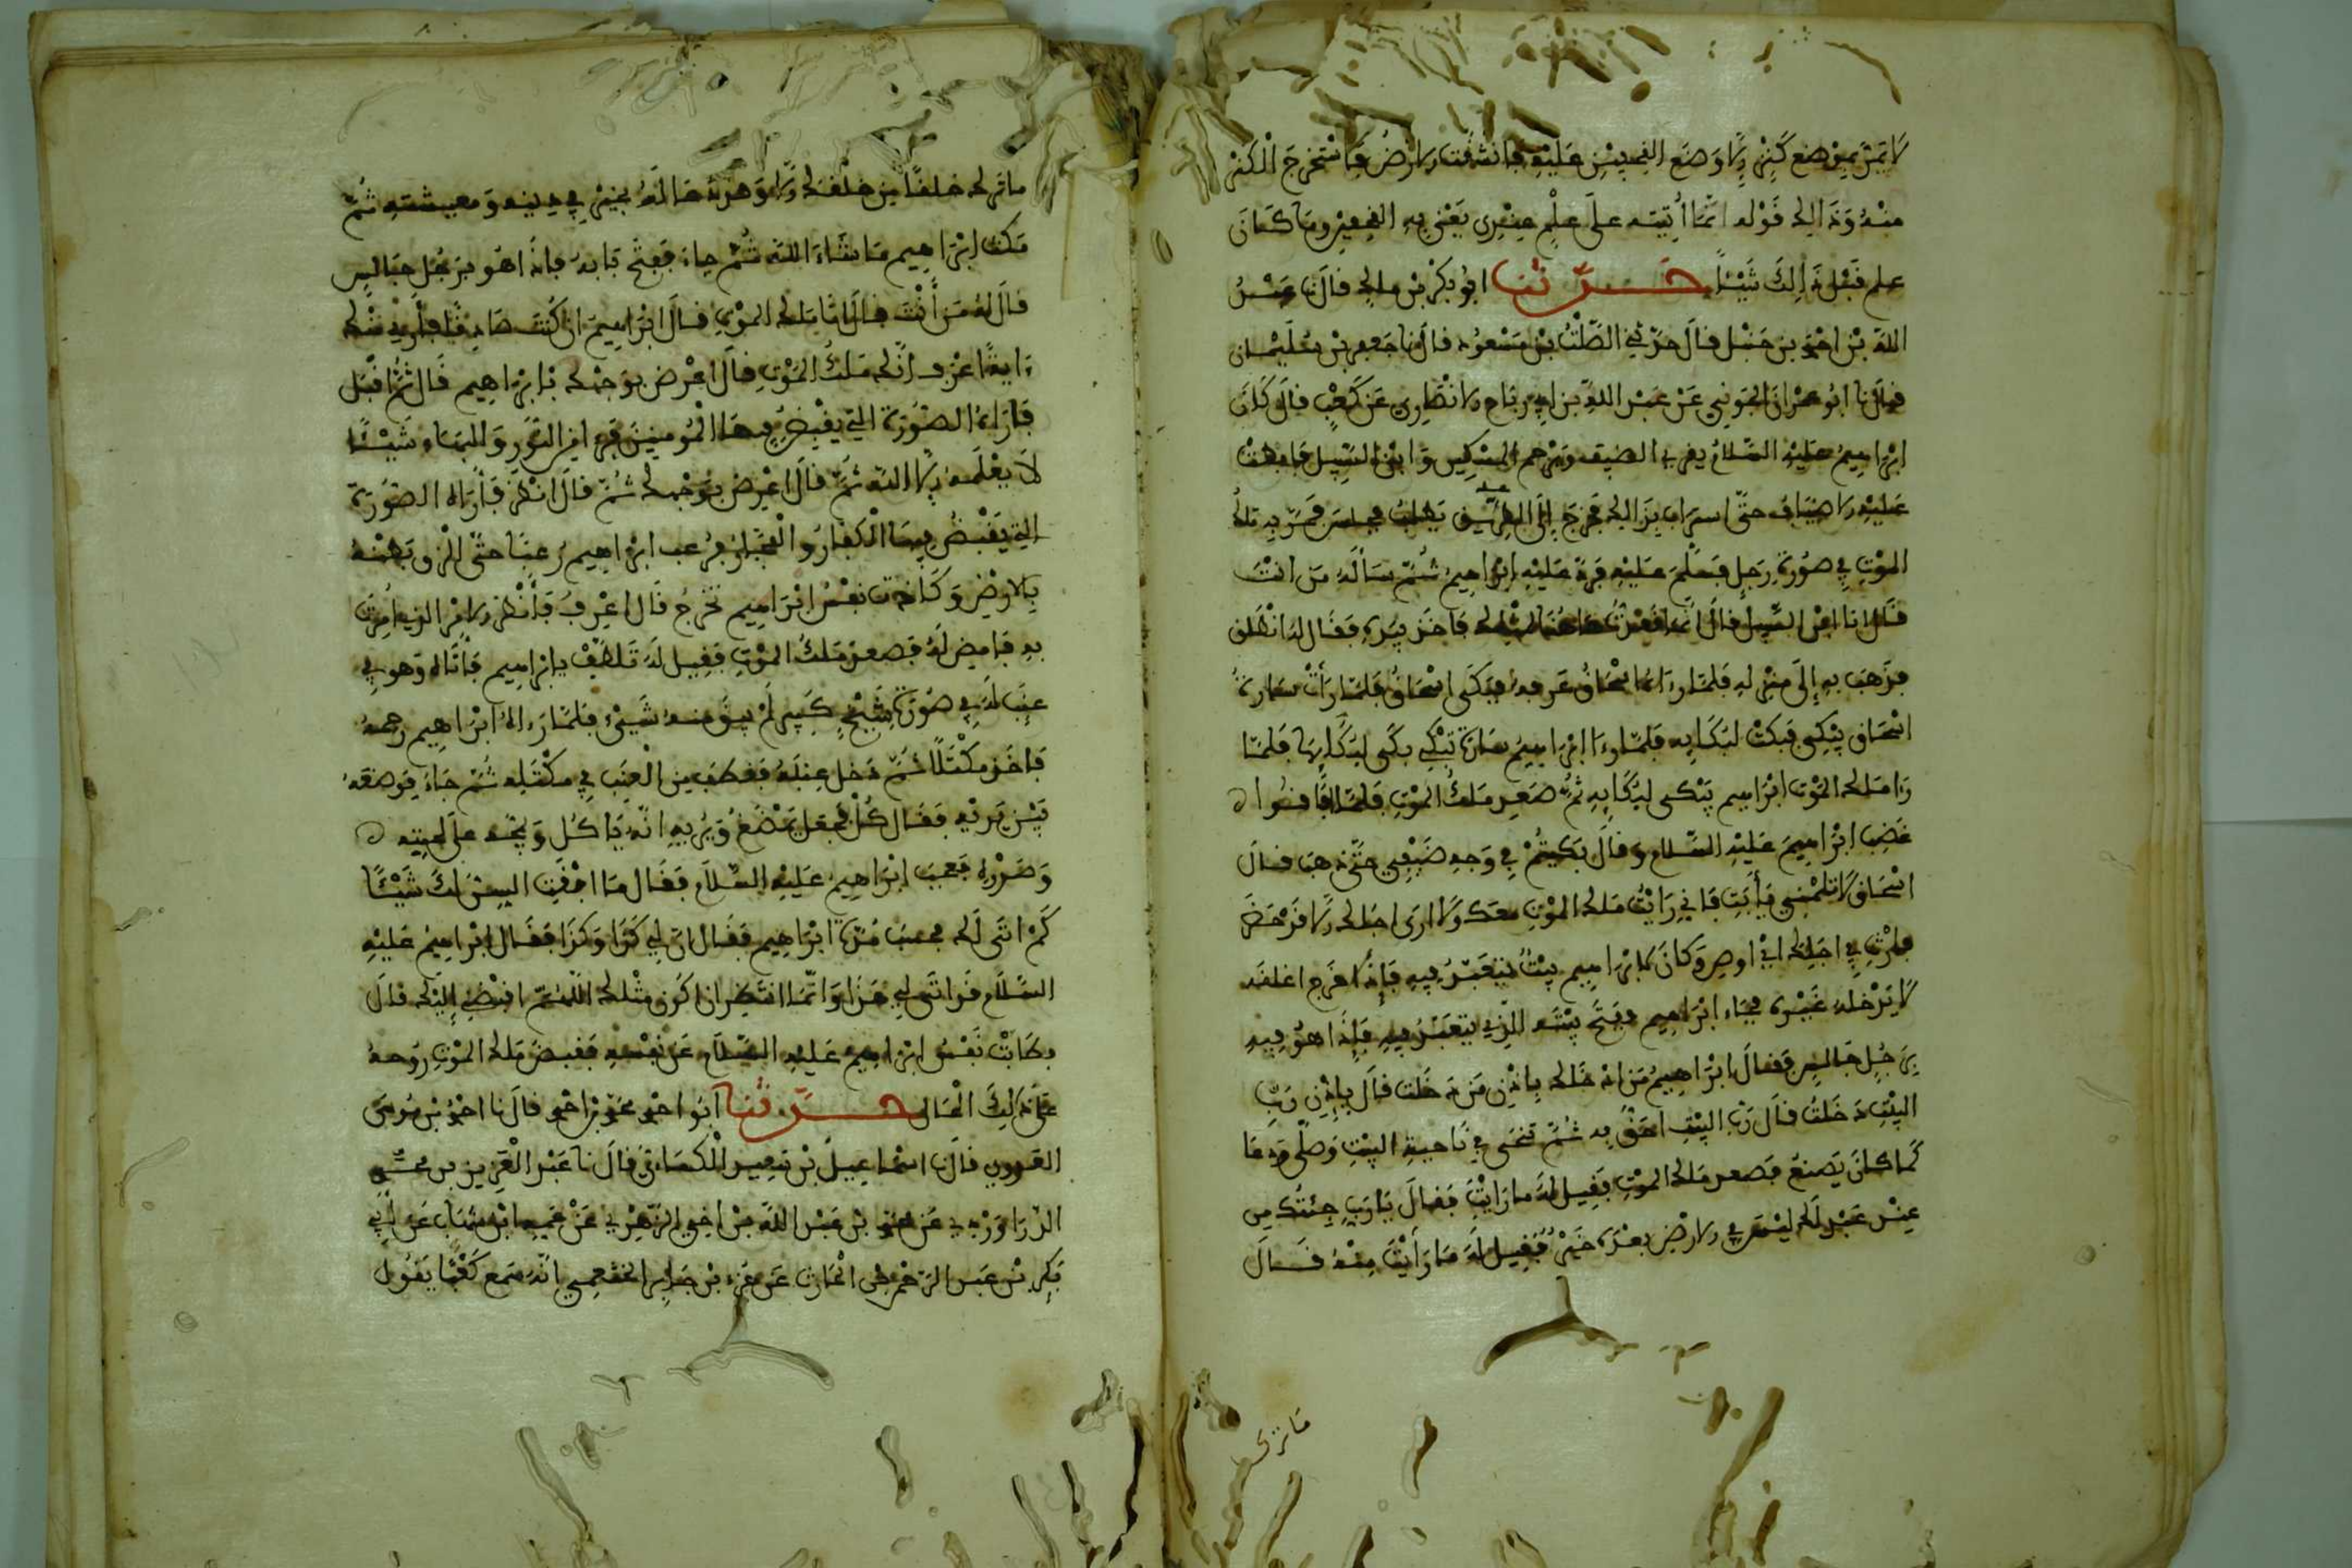 لا يمر بموضع كنز إلا وضع القضيب عليه فانشقت الارض فاستخرج الكنز
منه وذلك قوله انما أتيته على علم عندي يعني به وما كان
علم قبل ذلك شيئًا حدثنا ابو بكر بن مالك قال نا عبد
الله بن احمد بن حنبل قال حدثني الصلت بن مسعود قال نا جعفر بن سليمان
قال نا ابو عمران الجوني عن عبد الله بن رباح الانصاري عن كعب قال كان
ابراهيم عليه السلام يقري الضيف ويرحم المسكين وابن السبيل فابطت
عليه الاضياف حتى بذلك فخرج إلى الطريق يطلب فجلس فمر به ملك
الموت في صورة رجل فسلم عليه فرد عليه ابراهيم ثم سأله من انت
قال انا ابن السبيل قال انما قعدت هاهنا لمثلك فاخذ بيده فقال له انطلق
فذهب به إلى منزله فلما رءاه اسحاق عرفه فبكى اسحاق فلما رأت سارة
اسحاق يبكي فبكت لبكايه فلما رءا ابراهيم سارة تبكي بكى لبكايها فلما
رءا ملك الموت ابراهيم يبكي لبكايه ثم صعد ملك الموت فلما افاقوا
غضب ابراهيم عليه السلام وقال بكيتم في وجه ضيفي حتى ذهب قال
اسحاق لا تلمني يأبت فاني رايت ملك الموت معك ولا ارى اجلك إلا قد حضر
فارث في اهلك اي اوص وكان لابراهيم بيت يتعبد فيه فإذا خرج اغلقه
لا يدخله غيره فجاء ابراهيم ففتح بيته الذي يتعبد فيه فإذا هو فيه
برجل جالس فقال ابراهيم من ادخلك بإذن من دخلت قال بإذن رب
البيت دخلت قال رب البيت احق به ثم تنحى في ناحية البيت وصلى ودعا
كما كان يصنع فصعد ملك الموت فقيل له ما رايت فقال يا رب جئتك من
عند عبد لك ليس في الارض بعده خير فقيل له ما رأيت منه قال
ماترك
ما ترك خلقًا من خلقك إلا وقد دعا له بخير في دينه ومعيشته ثم
مكث ابراهيم ما شاء الله ثم جاء ففتح بابه فاذا هو برجل جالس
قال له من أنت قال انا ملك الموت قال ابراهيم ان كنت صادقًا فأرني منك
ءاية اعرف انك ملك الموت قال اعرض بوجهك يا ابراهيم قال ثم اقبل
فأراه الصورة التي يقبض بها المومنين فرءا من النور والبهاء شيئًا
لا يعلمه إلا الله ثم قال اعرض بوجهك ثم قال انظر فأراه الصورة
التي يقبض بها الكفار والفجار فرعب ابراهيم رعبًا حتى الزق بطنه
بالارض وكادت نفس ابراهيم تخرج قال اعرف فأنظر الامر الذي أمرت
به فامض له فصعد ملك الموت فقيل له تلطف بابراهيم فأتاه وهو في
عنب له في صورة شيخ كبير لم يبق منه شيء فلما رءاه ابراهيم رحمه
فاخذ مكتلًا ثم دخل عنبه فقطف من العنب في مكتله ثم جاء فوضعه
بين يديه فقال كل فجعل يمضغ ويريه انه ياكل ويمجه على لحيته
وصدره فعجب ابراهيم عليه السلام فقال ما ابقت السن منك شيئًا
كم اتى لك فحسب مدة ابراهيم فقال اتى لي كذا وكذا فقال ابراهيم عليه
السلام قد اتى لي هذا وانما انتظر ان اكون مثلك اللهم اقبضني إليك قال
فطابت نفس ابراهيم عليه السلام عن نفسه فقبض ملك الموت روحه
على ذلك الحال حدثنا ابو احمد محمد بن احمد قال نا احمد بن موسى
العدوي قال نا اسماعيل بن سعيد الكسائي قال نا عبد العزيز بن محمد
الدراوردي عن محمد بن عبد الله بن اخي الزهري عن عمه ابن شهاب عن أبي
بكر بن عبد الرحمن بن الحارث عن عن جابر الخثعمي انه سمع كعبًا يقول